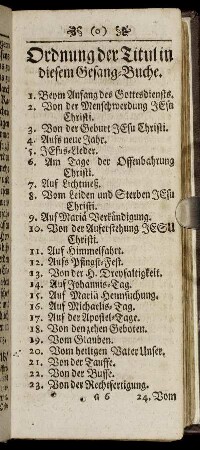 (o)
Ordnung der Titul in
diesem Gesang-Buche.
1. Beym Anfang des Gottesdiensts.
2. Von der Menschwerdung JEsu
Christi.
3. Von der Geburt JEsu Christi.
4. Aufs neue Jahr.
5. JEsus-Lieder.
6. Am Tage der Offenbahrung
Christi.
7. Auf Lichtmeß.
8. Vom Leiden und Sterben JEsu
Christi.
9. Auf Mariä Verkündigung.
10. Von der Auferstehung JESU
Christi.
11. Auf Himmelfahrt.
12. Aufs Pfingst-Fest.
13. Von der H. Dreyfaltigkeit.
14. Auf Johannis-Tag.
15. Auf Mariä Heimsuchung.
16. Auf Michaelis-Tag.
17. Auf der Apostel-Tage.
18. Von den zehen Geboten.
19. Vom Glauben.
20. Vom heiligen Vater Unser.
21. Von der Tauffe.
22. Von der Busse.
23. Von der Rechtfertigung.
G 6 24. Vom